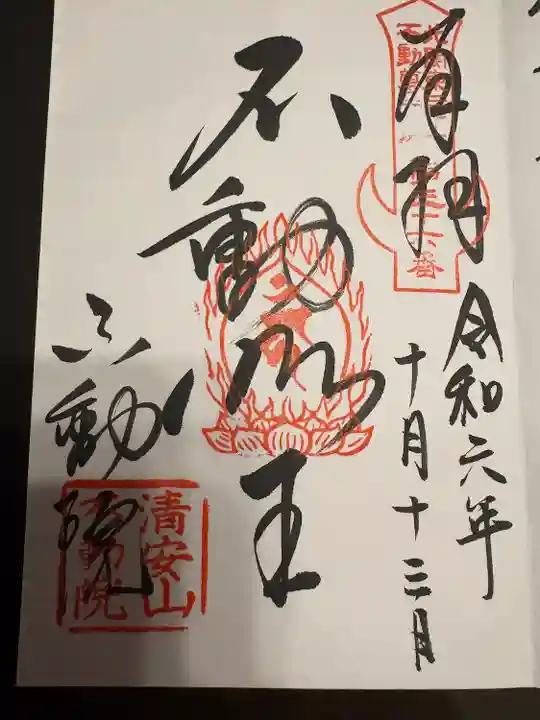 奉拝
令和六年
十月十三日
不動明王
不動院
清安山
不動院